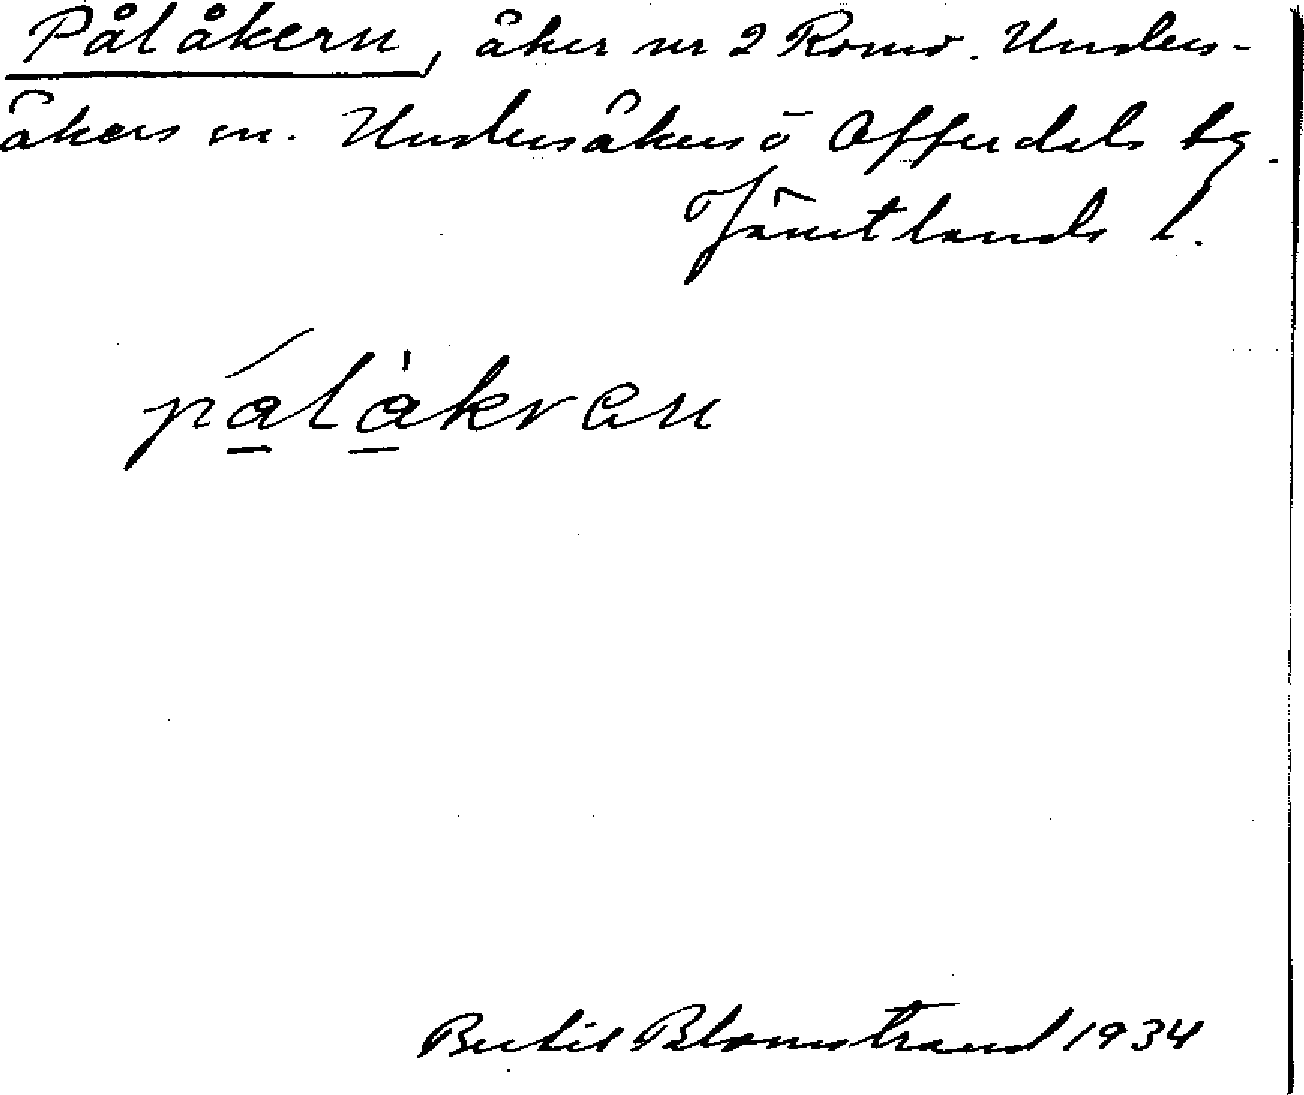 Pålåkern, åker nr 2 Romo. Unders-
åkers sn. Undersåkers o Offerdals tg.
Jämtlands l.
pálàkren
Bertil Blomstrand 1934